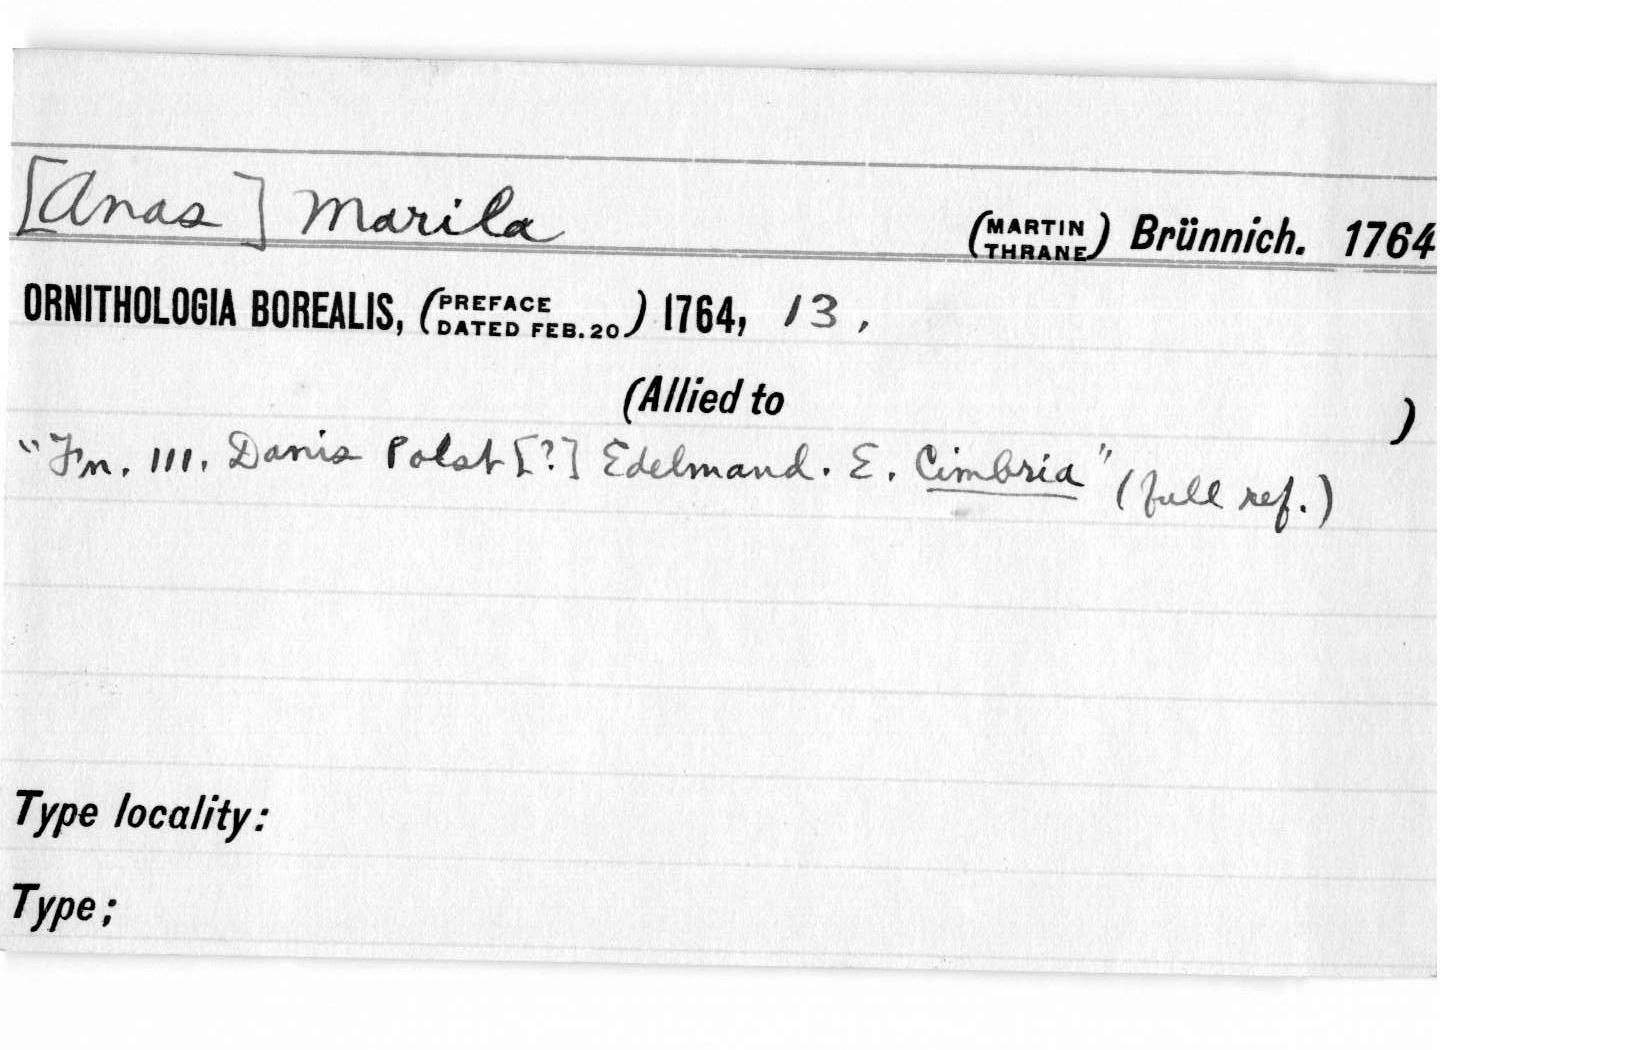 [Anas] Marila (MARTIN THRANE) Brünnich. 1764
ORNITHOLOGIA BOREALIS, (PREFACE DATED FEB. 20) 1764, 13,
(Allied to )
"Fn. 111. Danis Polst [?] Edelmand. E. Cimbria" (full ref.)
Type locality:
Type;